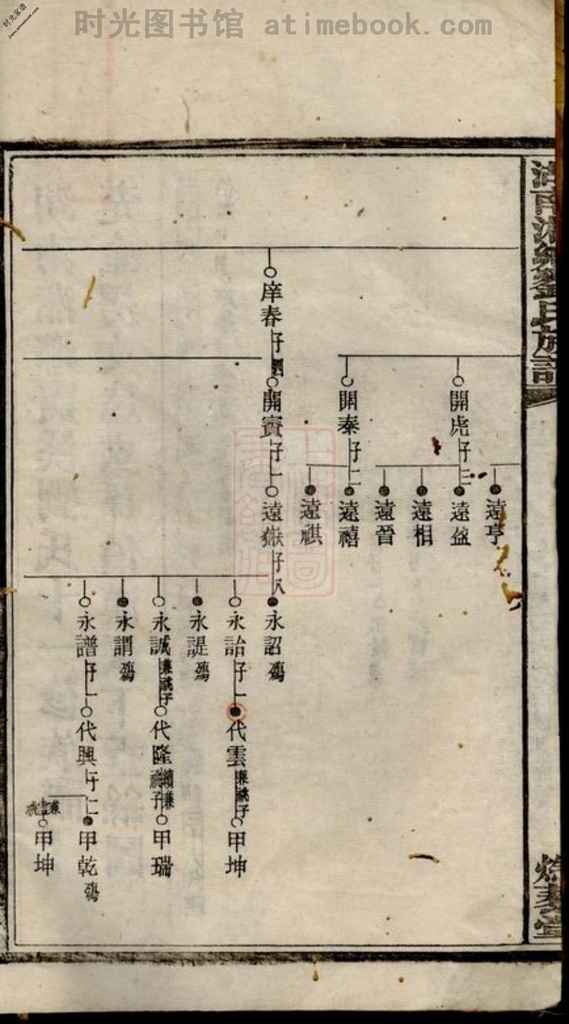 时光图书馆 atimebook.com
庠春子
開虎子二
開泰子二
開賓子一
遠亨
遠盈
遠相
遠晉
遠禧
遠祺
遠嶽子八
永詔殤
永詒子一
永諟殤
永誠兼祧子
永謂殤
永譜子一
代雲兼祧子
代隆
代興子二
甲坤
甲瑞
甲乾殤
甲坤
族譜